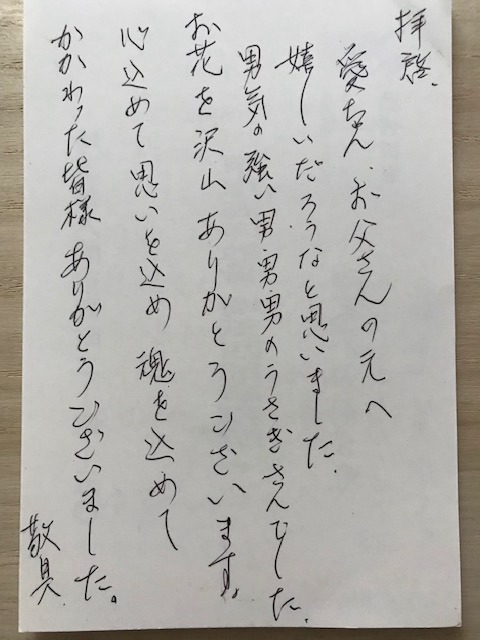 拝啓.
愛ちゃん、お父さんの元へ
嬉しいだろうなと思いました.
男気の強い男・男・男のうさぎさんでした.
お花を沢山 ありがとうございます。
心込めて思いを込め 魂を込めて
かかわった皆様 ありがとうございました。
敬具.